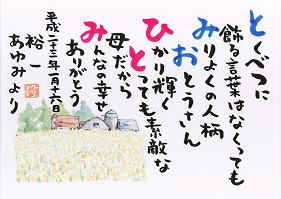 とくべつに
飾る言葉はなくっても
みりよくの人柄
おとうさん
ひかり輝く
とっても素敵な
母だから
みんなの幸せ
ありがとう
平成二十三年一月十六日
裕一
あゆみより